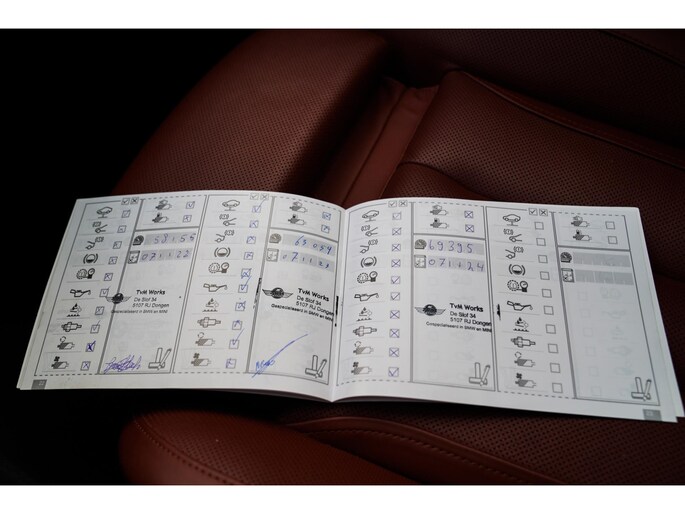 071122
TvM Works
De Slof 34
5107 RJ Dongen
Gespecialiseerd in BMW en MINI
63 054
071123
TvM Works
De Slof 34
5107 RJ Dongen
Gespecialiseerd in BMW en MINI
69395
071124
TvM Works
De Slof 34
5107 RJ Dongen
Gespecialiseerd in BMW en MINI